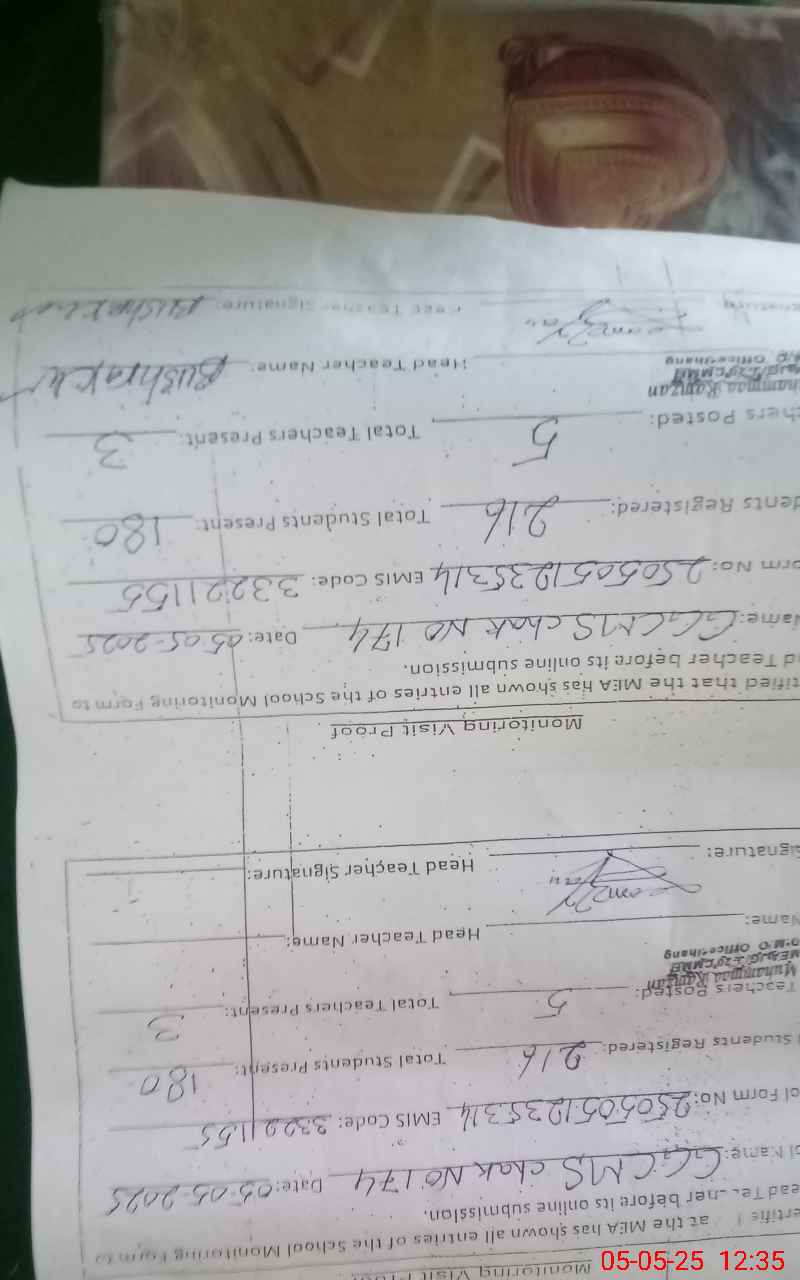 Monitoring Visit
at the MEA has shown all entries of the School Monitoring Form to
before its online submission.
Name: GGCMS chak NO 174 Date: 05-05-2025
Form No: 2505051235314 EMIS Code: 33221155
Students Registered: 216 Total Students Present: 180
Teachers Posted: 5 Total Teachers Present: 3
Muhammad Ramzan
Name: Head Teacher Name:
Signature: Head Teacher Signature:
Monitoring Visit Proof
that the MEA has shown all entries of the School Monitoring Form to
Teacher before its online submission.
GGCMS chak NO 174 Date: 05-05-2025
No: 2505051235314 EMIS Code: 33221155
Registered: 216 Total Students Present: 180
Posted: 5 Total Teachers Present: 3
Ramzan
Head Teacher Name: Bushra
Head Teacher Signature: Bushra
05-05-25 12:35